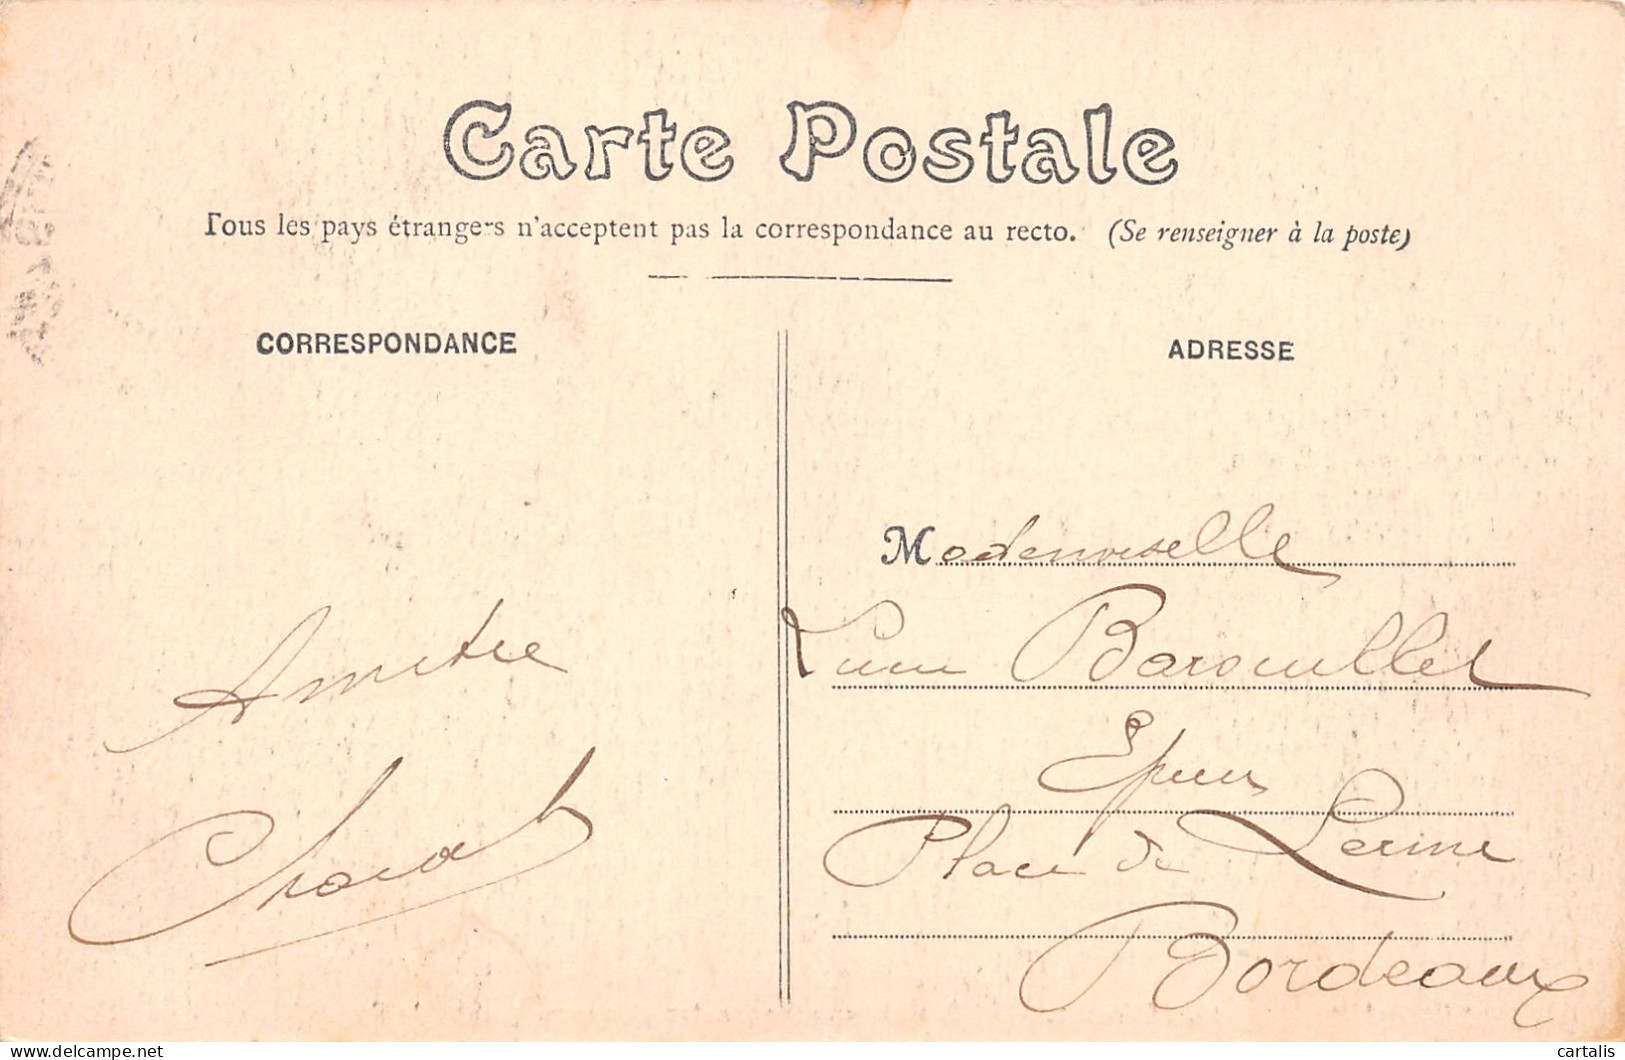 Carte Postale
Tous les pays étrangers n'acceptent pas la correspondance au recto. (Se renseigner à la poste)
CORRESPONDANCE
ADRESSE
Mademoiselle
Barouillet
Place de Lerme
Bordeaux
Amitié
delcampe.net
cartalis